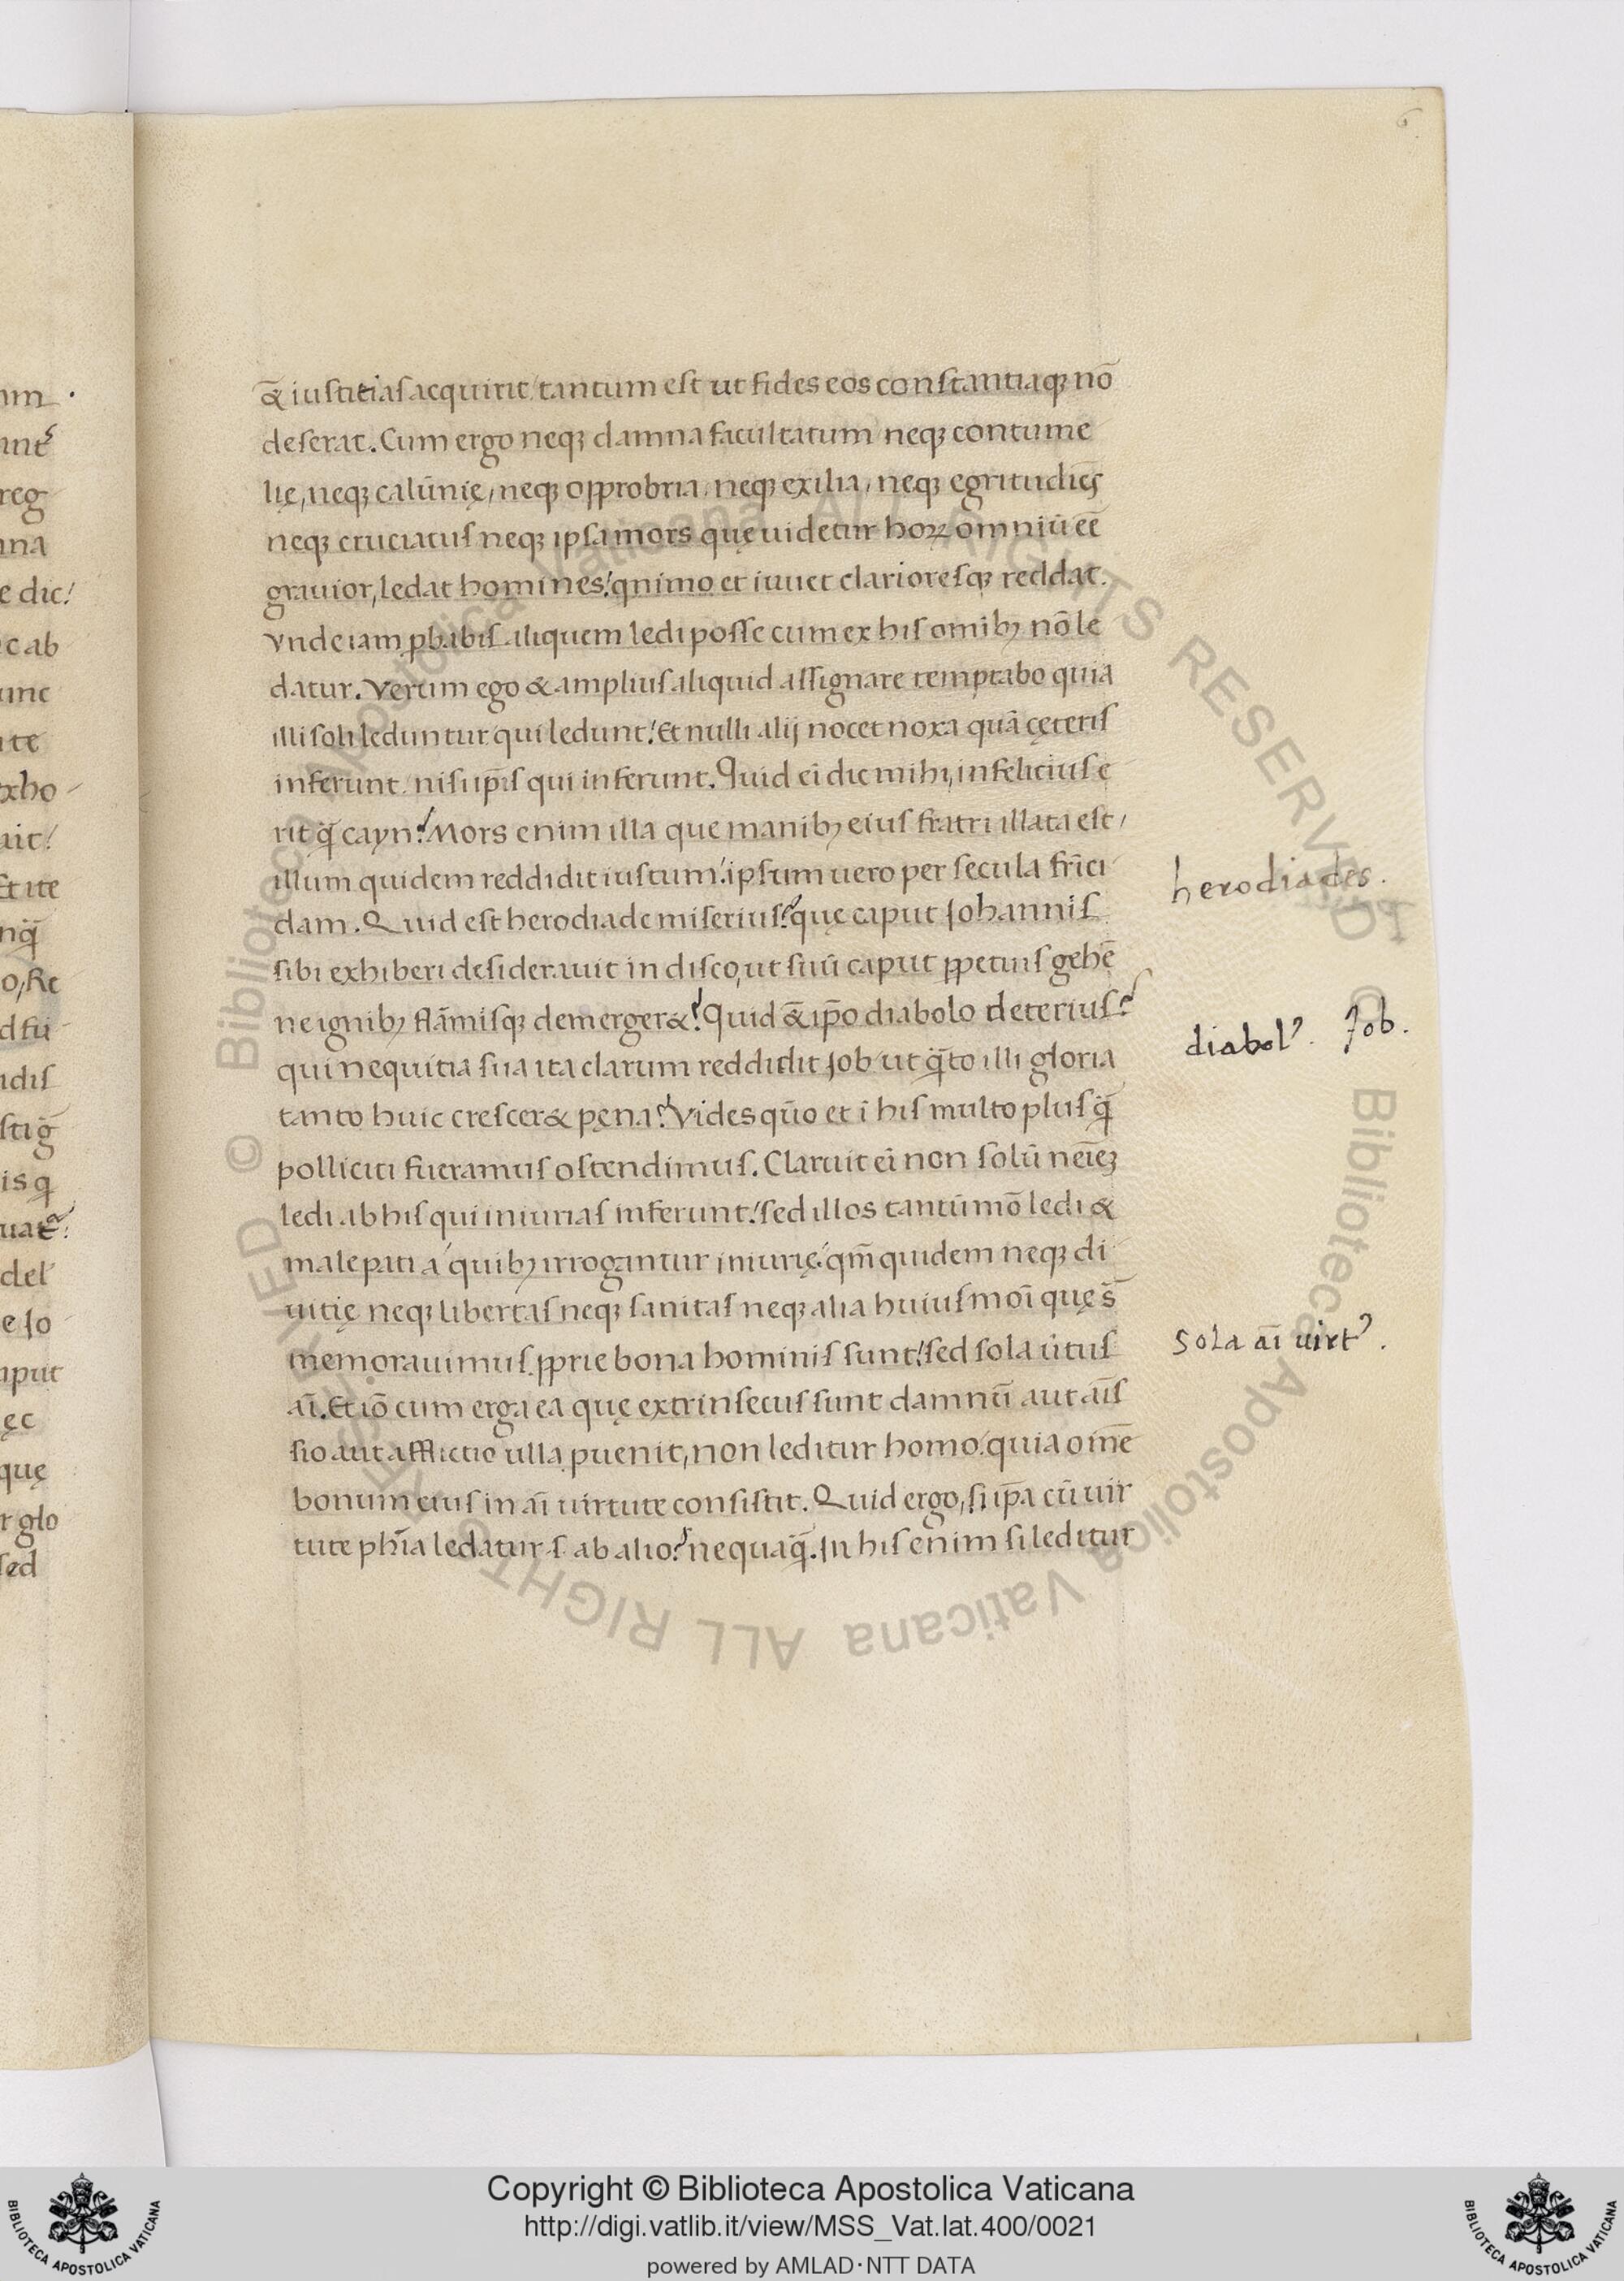 6
&̄ iustitias acquirit, tantum est ut fides eos constantiaqꝫ nō
deserat. Cum ergo neqꝫ damna facultatum neqꝫ contume
lię, neqꝫ calūnię, neqꝫ opprobria, neqꝫ exilia, neqꝫ egritudiēs
neqꝫ cruciatus neqꝫ ipsa mors quę uidetur hoꝝ omniū eē
grauior, ledat homines! qnimo et iuuet clarioresqꝫ reddat.
vnde iam ꝓbabis aliquem ledi posse cum ex his omibꝫ nō le
datur. Verum ego & amplius aliquid assignare temptabo quia
illi soli leduntur qui ledunt! Et nulli alij nocet noxa quā cęteris
inferunt nisi ip̄is qui inferunt. Quid ei̅ dic mihi, infelicius e
rit q̄ cayn? Mors enim illa que manibꝫ eius fratri illata est,
illum quidem reddidit iustum! ipsum uero per secula fr̄ici
dam. Quid est herodiade miserius? quę caput Johannis
sibi exhiberi desiderauit in disco, ut suū caput ꝑpetuis gehē
ne ignibꝫ flāmisqꝫ demerger&? Quid &̄ ip̄o diabolo deterius?
qui nequitia sua ita clarum reddidit Job ut q̄to illi gloria
tanto huic crescer& pęna? Vides quō et ī his multo plus q̄
polliciti fueramus ostendimus. Claruit ei̅ non solū nei̅eꝫ
ledi ab his qui iniurias inferunt! sed illos tantūmō ledi &
male pati a quibꝫ irrogantur iniurię! qm̄ quidem neqꝫ di
uitię neqꝫ libertas neqꝫ sanitas neqꝫ alia huiusmoi̅ quę s̄
memorauimus ꝓprie bona hominis sunt! sed sola u̅tus
ai̅. Et iō cum erga ea quę extrinsecus sunt damnū aut ai̅s
sio aut afflictio ulla ꝑuenit, non leditur homo. quia om̄e
bonum eius in ai̅ uirtute consistit. Quid ergo, si ip̄a cū uir
tute ph̄ia ledatur s. ab alio? nequaq̄. In his enim si leditur
herodiades.
diabolꝰ. Job.
Sola ai̅ uirtꝰ.
um
unt
reg
una
e dic!
c ab
unc
ite
exho
uit!
Et ite
nq̄
o, Re
d fu
udis
stig̅
is q̄
uat
del
e Jo
aput
ęc
quę
r glo
sed
© Biblioteca Apostolica Vaticana ALL RIGHTS RESERVED © Biblioteca Apostolica Vaticana ALL RIGHTS RESERVED
Copyright © Biblioteca Apostolica Vaticana
http://digi.vatlib.it/view/MSS_Vat.lat.400/0021
powered by AMLAD·NTT DATA
BIBLIOTECA APOSTOLICA VATICANA
BIBLIOTECA APOSTOLICA VATICANA